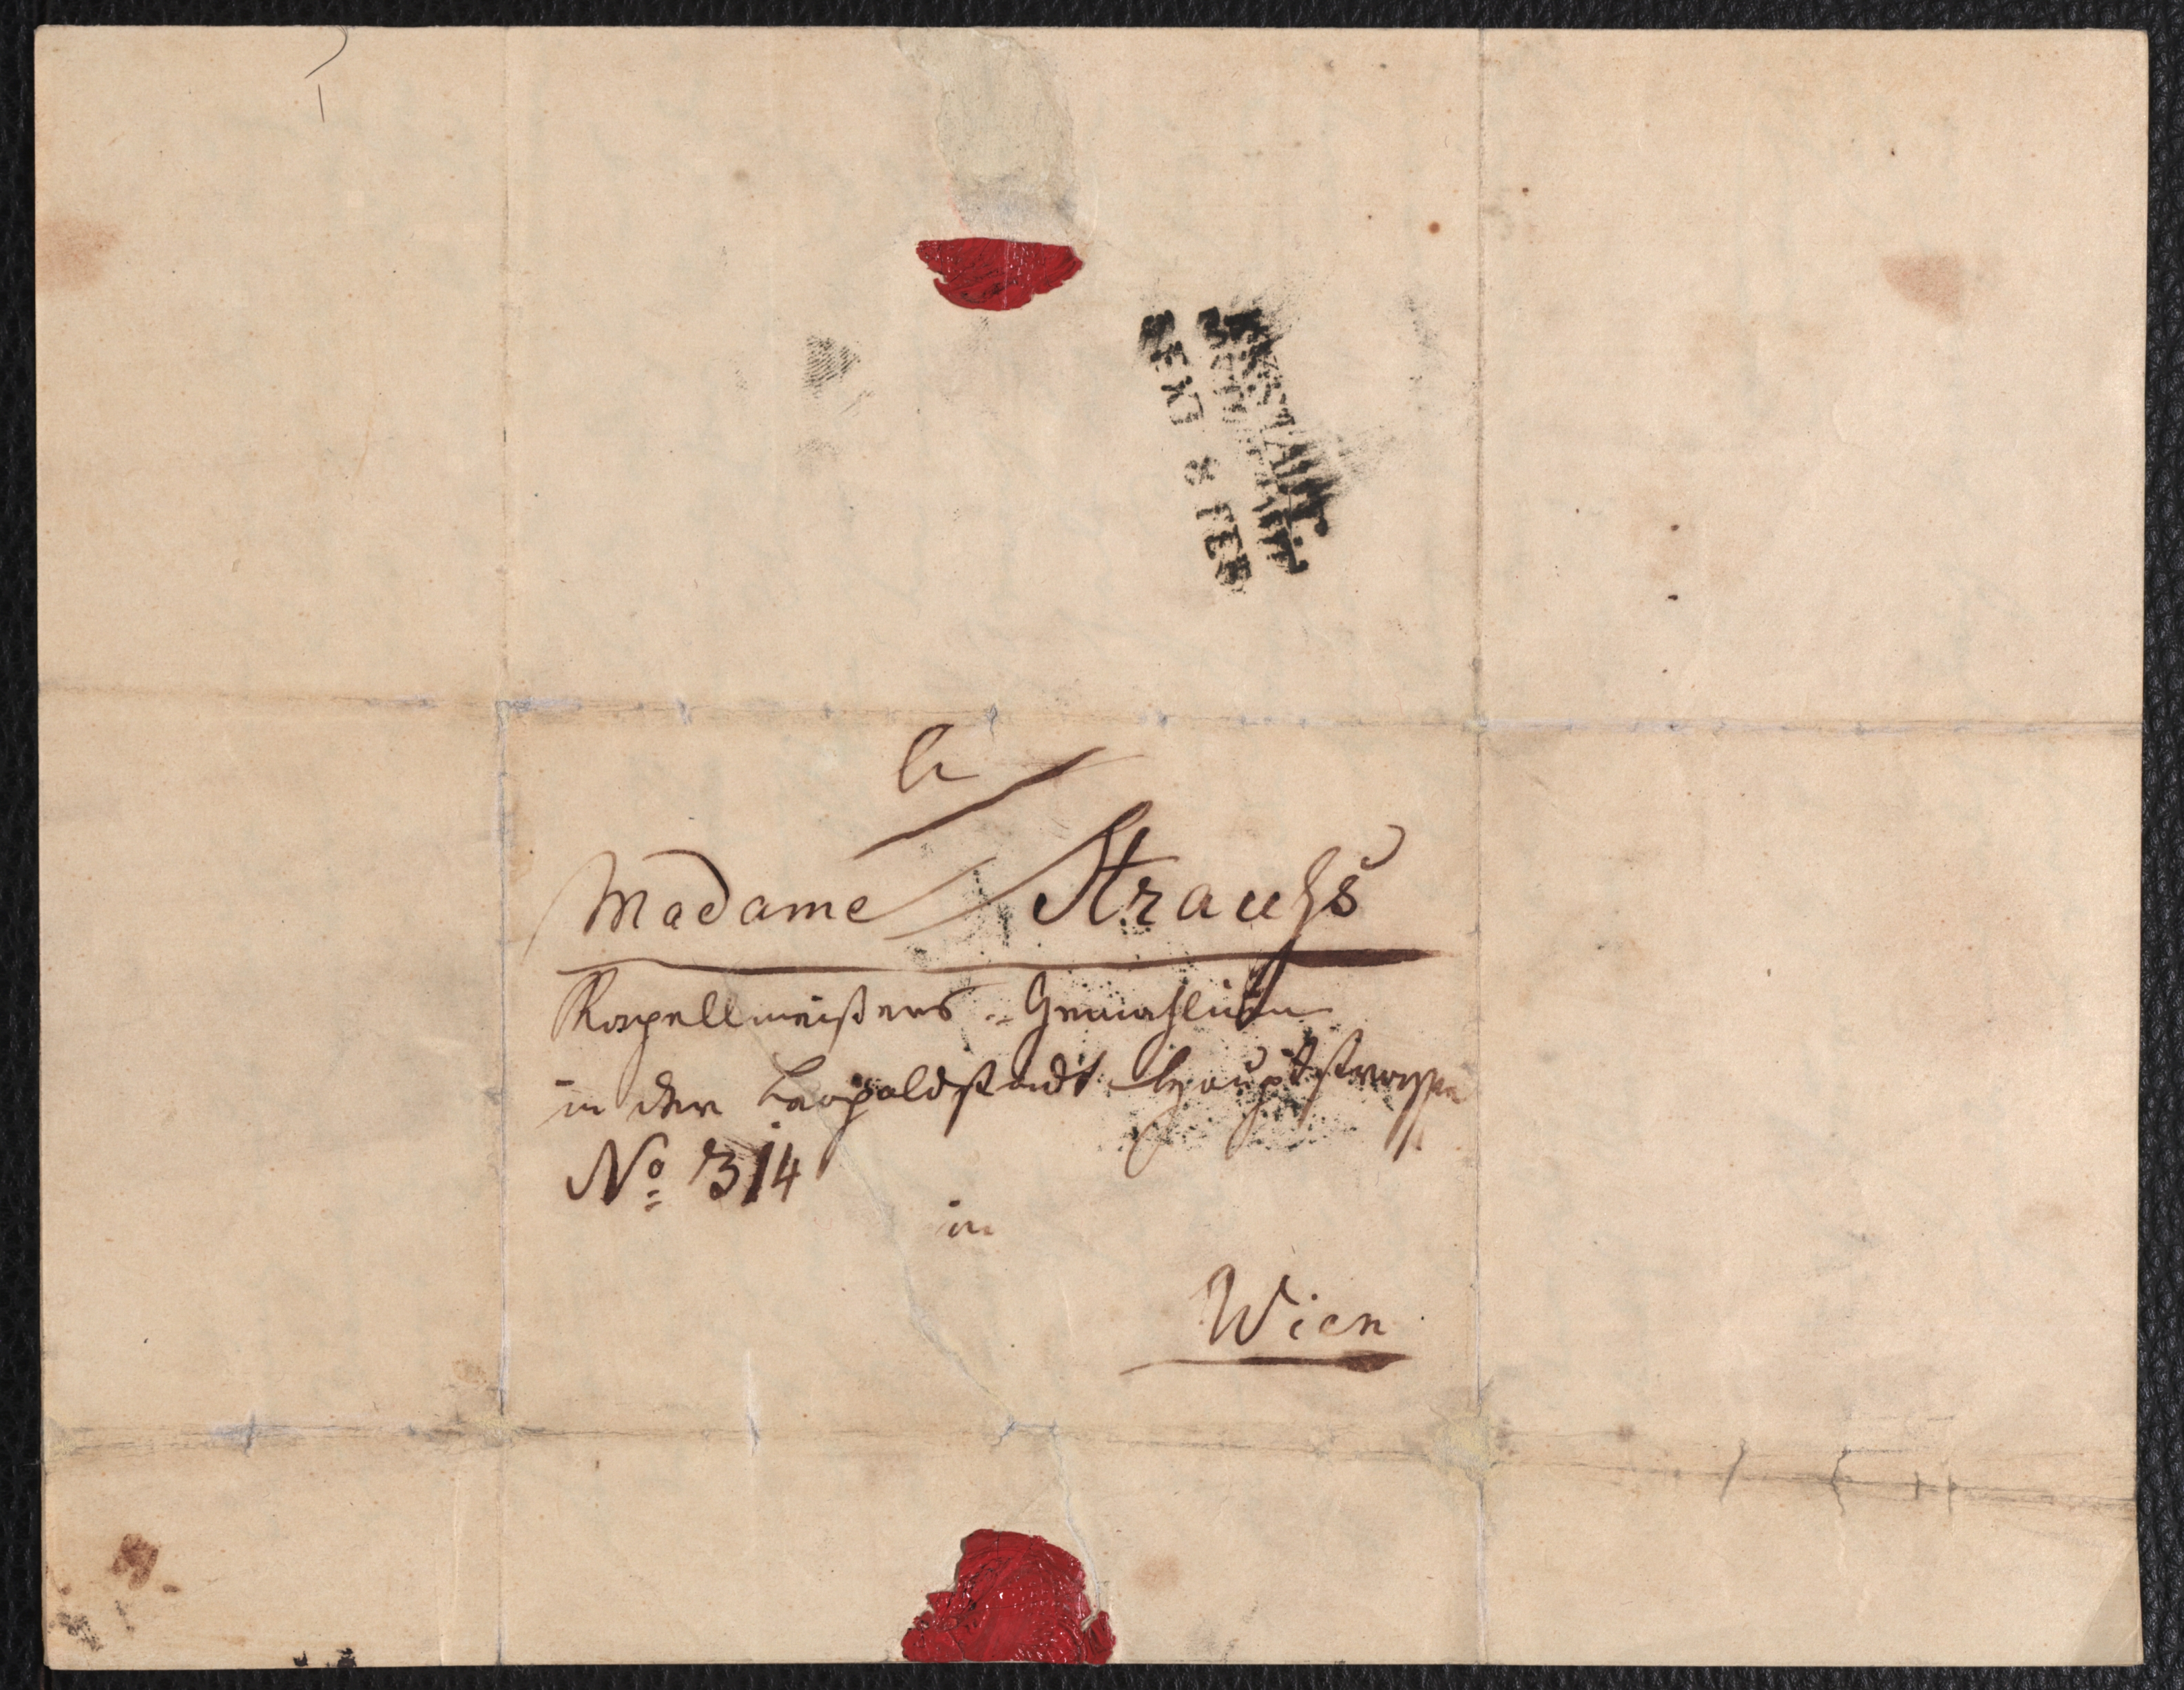 à
Madame Strauhs
Kapellmeisters-Gemahlin
in der Leopoldstadt Hauptstrasse
No 314
in
Wien